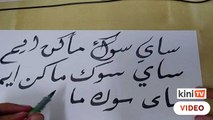 ساي سوك ماكن ايم
ساي سوك ماكن ايم
ساي سوك ما
kiniTV
VIDEO